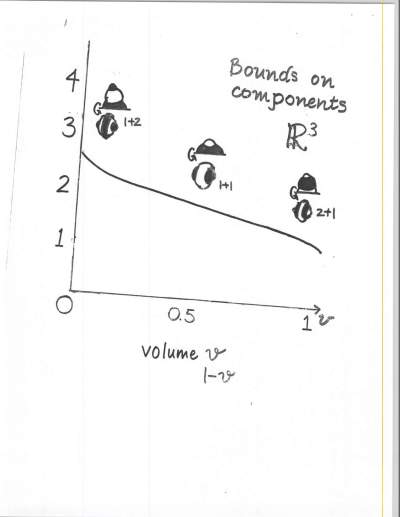 Bounds on
components
ℝ³
4
3
2
1
0
G
1+2
G
1+1
G
2+1
0.5
1 v
volume v
1-v